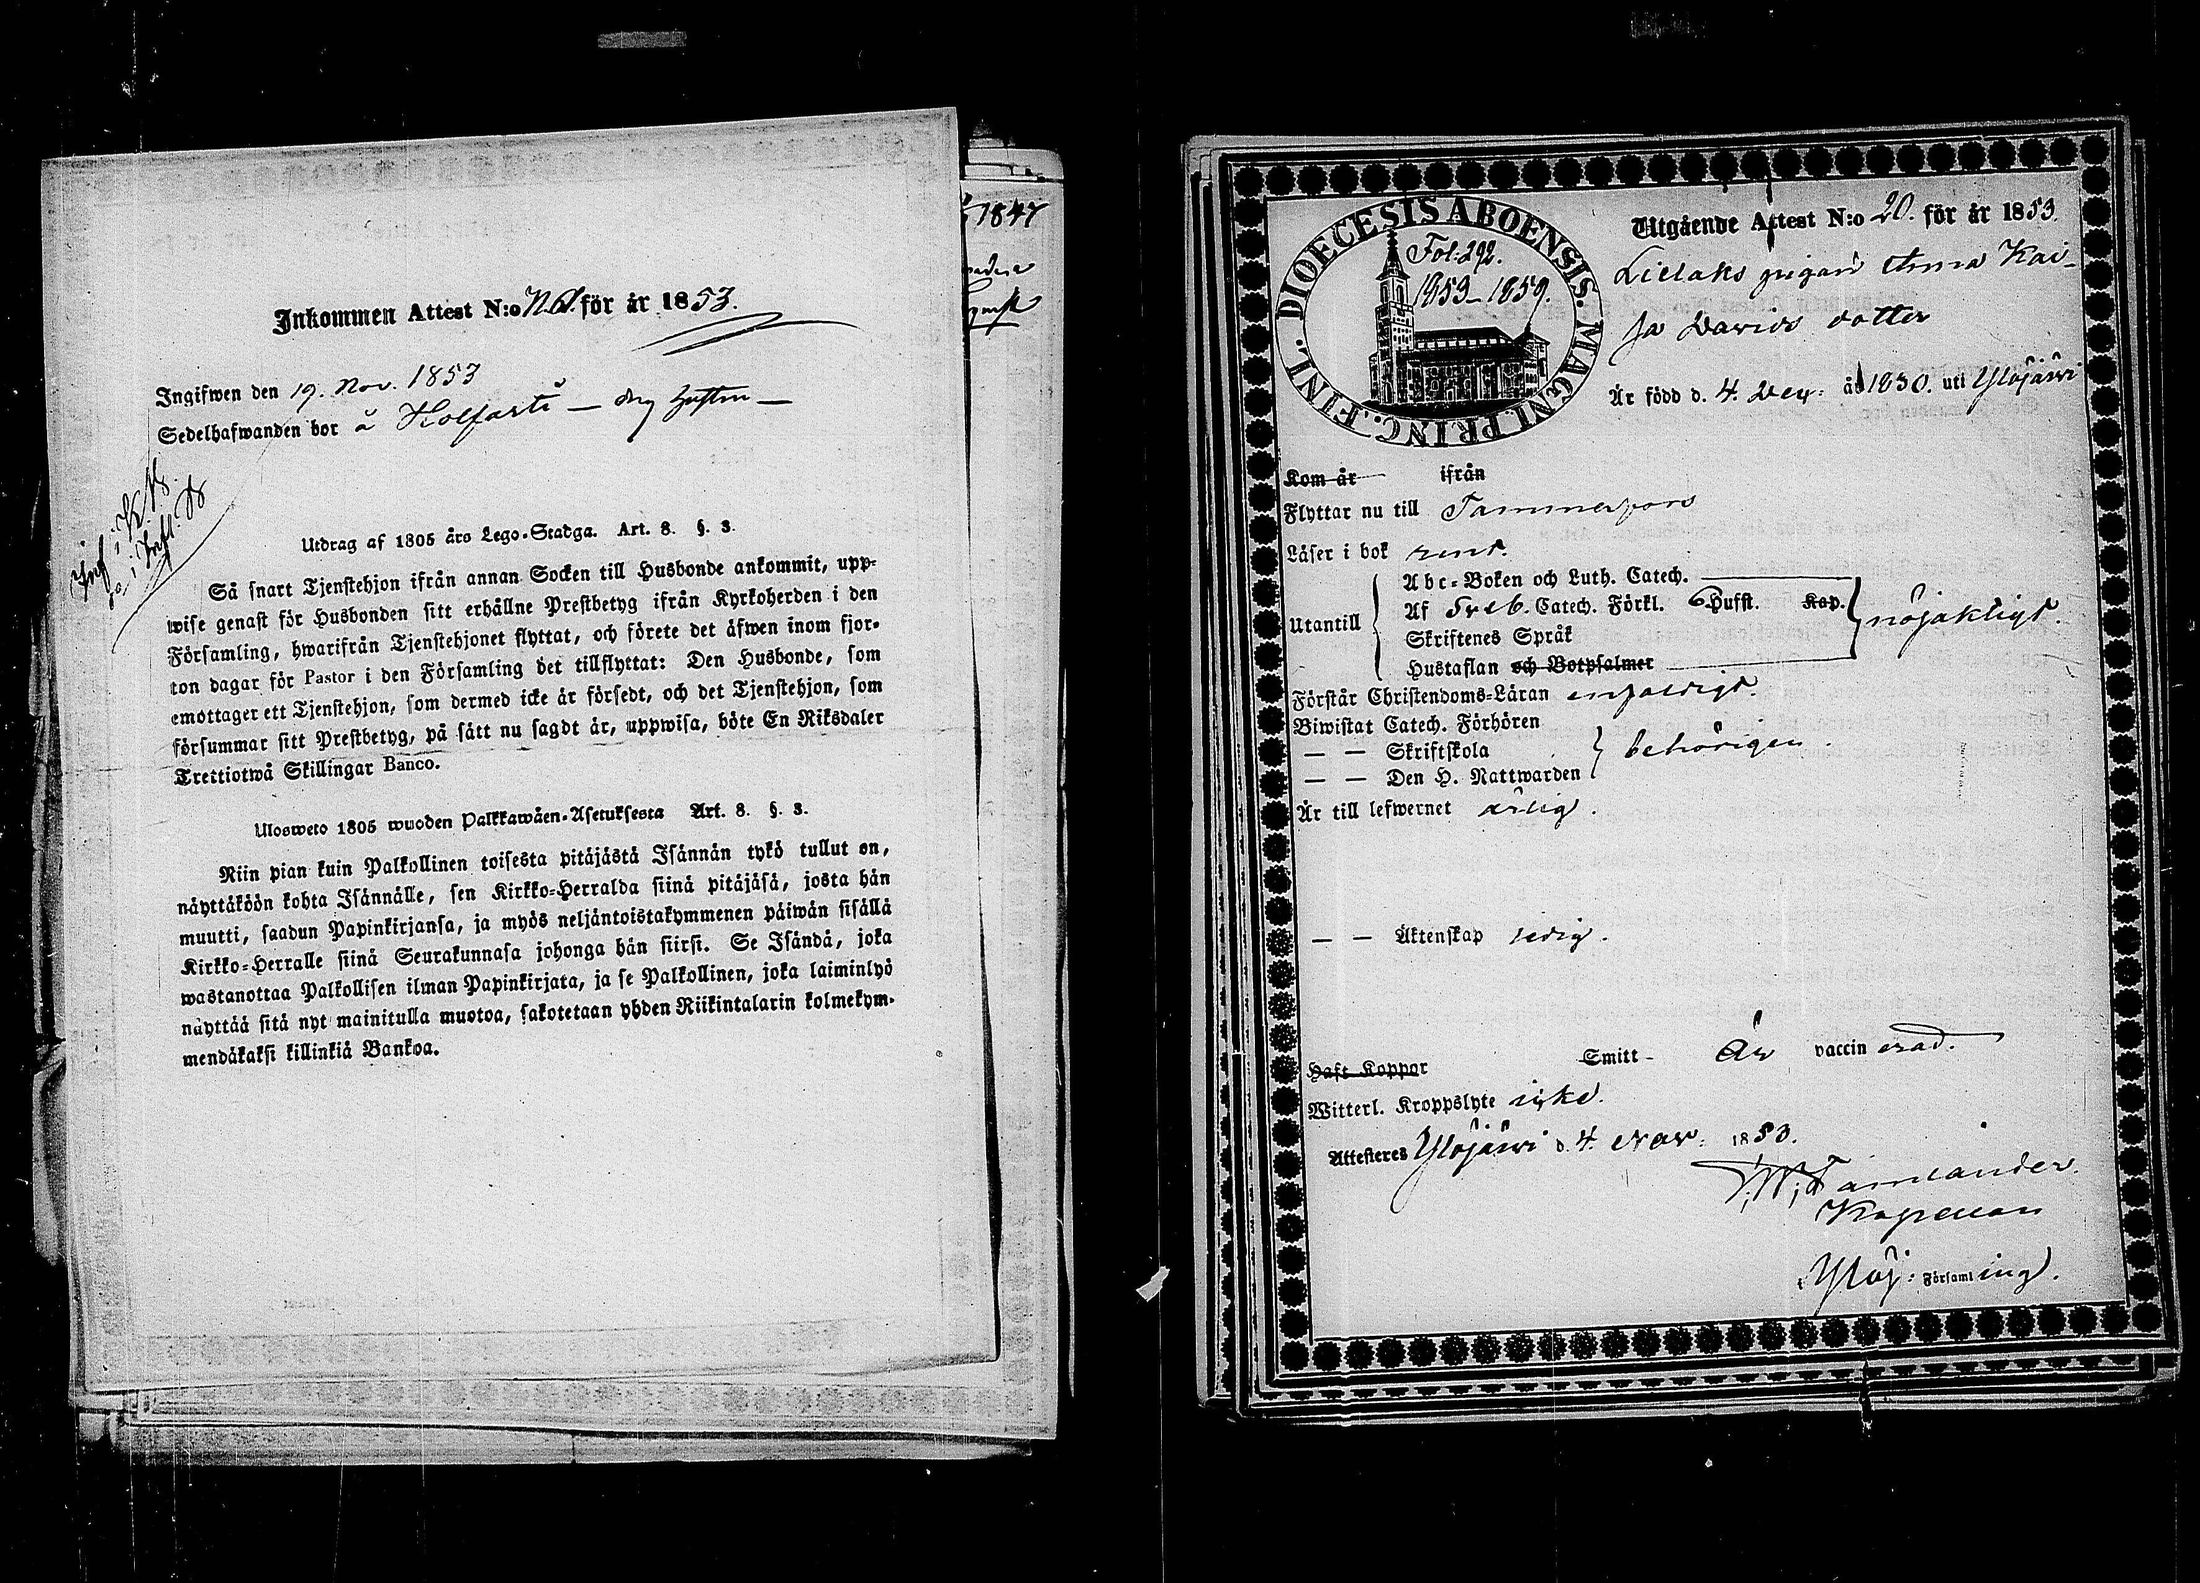 Inkommen Attest N:o för år 1853.
Ingifwen den 19. Nov. 1853
Sedelhafwanden bor å
Utdrag af 1805 års Lego-Stadga. Art. 8. §. 3.
Så snart Tjenstehjon ifrån annan Socken till Husbonde ankommit, upp-
wise genast för Husbonden sitt erhållne Prestbetyg ifrån Kyrkoherden i den
Församling, hwarifrån Tjenstehjonet flyttat, och förete det äfwen inom fjor-
ton dagar för Pastor i den Församling det tillflyttat: Den Husbonde, som
emottager ett Tjenstehjon, som dermed icke är försedt, och det Tjenstehjon, som
försummar sitt Prestbetyg, på sätt nu sagdt är, uppwisa, böte En Riksdaler
Trettiotwå Skillingar Banco.
Ulosweto 1805 wuoden Palkkawäen-Asetuksesta Art. 8. §. 3.
Niin pian kuin Palkollinen toisesta pitäjästä Isännän tykö tullut on,
näyttäköön kohta Isännälle, sen Kirkko-Herralda siinä pitäjäsä, josta hän
muutti, saadun Papinkirjansa, ja myös neljäntoistakymmenen päiwän sisällä
Kirkko-Herralle siinä Seurakunnasa johonga hän siirsi. Se Isändä, joka
wastanottaa Palkollisen ilman Papinkirjata, ja se Palkollinen, joka laiminlyö
näyttää sitä nyt mainitulla muotoa, sakotetaan yhden Riikintalarin kolmekym-
mendäkaksi killinkiä Bankoa.
1847
DIOECESIS ABOENSIS. MAGNI PRINC. FINL.
Fol: 292.
1853–1859.
Utgående Attest N:o 20. för år 1853.
Lielaks pigan Anna Kai-
sa Davids dotter
Är född d. 4. Dec: år 1830. uti Ylöjärvi
Kom år ifrån
Flyttar nu till Tammerfors
Läser i bok rent.
Abc-Boken och Luth. Catech.
Utantill Af Sveb. Catech. Förkl. 6 Hufst. Kap. nöjaktigt.
Skriftenes Språk
Hustaflan och Botpsalmer
Förstår Christendoms-Läran enfaldigt.
Biwistat Catech. Förhören
— — Skriftskola behörigen.
— — Den H. Nattwarden
Är till lefwernet ärlig.
— — Äktenskap ledig.
Haft Koppor Smitt Är vaccinerad.
Witterl. Kroppslyte icke.
Attesteres Ylöjärvi d. 4. Nov: 1853.
Tamlander.
Kapellan
Ylöj: Församling.